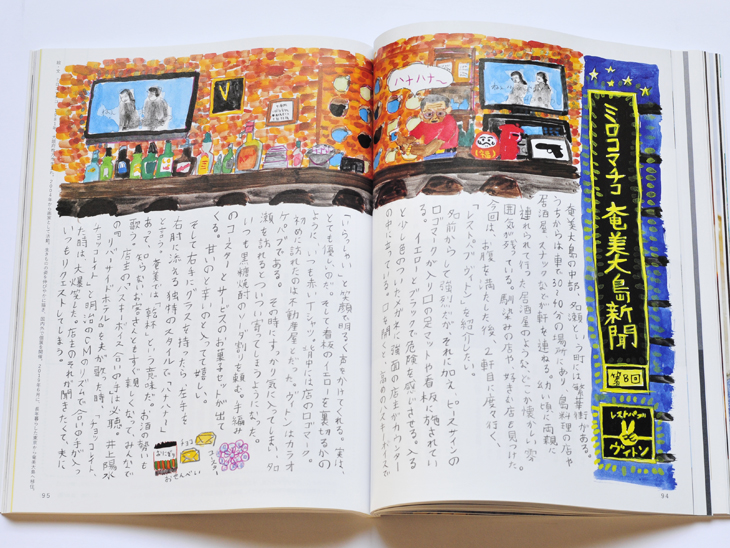 ミロコマチコ 奄美大島新聞
第8回
レストパブ
ヴィトン
奄美大島の中部、名瀬という町には繁華街がある。
うちからは車で30、40分の場所にあり、島料理の店や
居酒屋、スナックなどが軒を連ねる。幼い頃に両親に
連れられて行った居酒屋のような、どこか懐かしい雰
囲気が残っている。馴染みの店や好きな店も見つけた。
今回は、お腹を満たした後、2軒目に度々行く、
「レストパブ ヴィトン」を紹介したい。
名前からして強烈だが、それに加え、ピースサインの
ロゴマークが入り口の足マットや看板に施されてい
る。イエローとブラックで危険感じさせる。入る
と少し色のついたメガネに強面の店主がカウンター
の中に立っている。口を開くと、高めのハスキーボイスで
「いらっしゃい〜」と笑顔で明るく声をかけてくれる。実は、
とても優しいのだ。そして看板のイエローを裏切るかの
ように、いつも赤いTシャツ。背中には店のロゴマーク。
初めに訪れたのは不動産屋とだった。ヴィトンはカラオ
ケパブである。その時にすっかり気に入ってしまい、名
瀬を訪れるとついつい寄ってしまうようになった。
いつも黒糖焼酎のソーダ割りを頼む。手編み
のコースターとサービスのお菓子セットが出て
くる。甘いのと辛いのと入ってて嬉しい。
そして右手にグラスを持ったら、左手を
右肘に添える独特のスタイルで、「ハナハナ〜」
と言う。奄美では「乾杯」という意味だ。お酒の勢いも
あって、知らないお客さんともすぐ親しくなって、みんなで
歌う。店主のハスキーボイス合いの手は必聴。井上陽水
の「リバーサイドホテル」を夫が歌った時、「チョコレイト、
チョコレイト」と明治のCMのリズムで合いの手が入っ
た時は、大爆笑した。店主のそれが聞きたくて、夫に
いつもリクエストしてしまう。
ハナハナ〜
V
チョコ
おせんべい
94
95